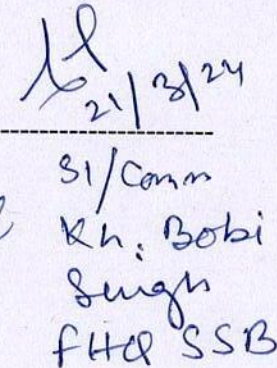 21/3/24
SI/Comm
Kh. Bobi
Singh
FHQ SSB